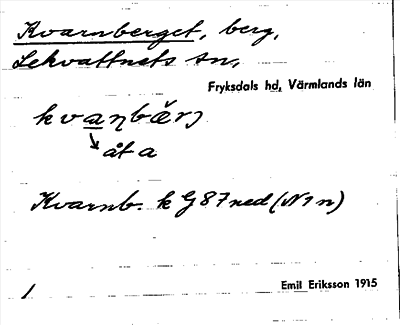 Kvarnberget, berg,
Lekvattnets sn,
Fryksdals hd, Värmlands län
kvaŋbærj
åt a
Kvarnb. k G 87 ned (N 1 n)
Emil Eriksson 1915
1